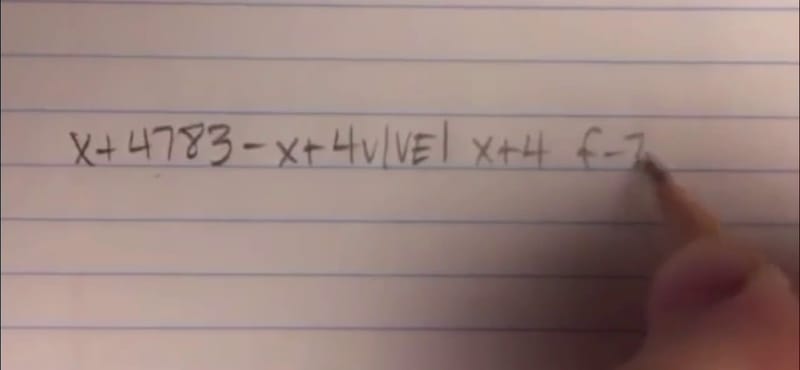 x+4783-x+4V|VE| x+4 f-7